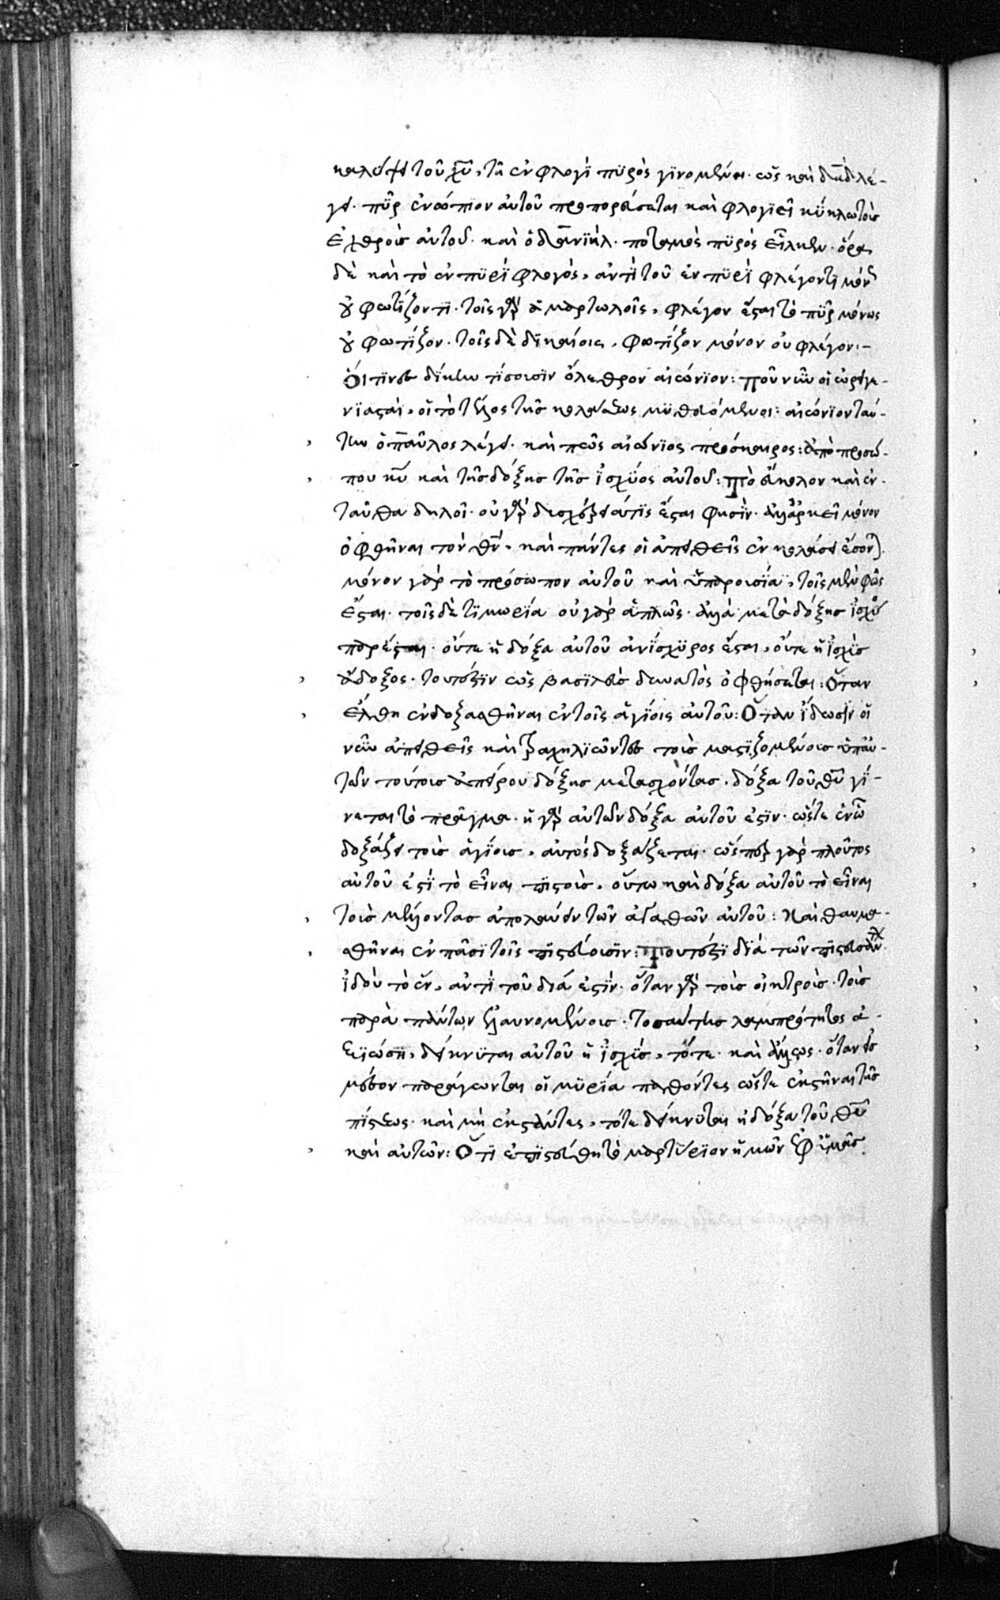 καλύψει τοῦ χυ, τῆ ἐν φλογὶ πυρὸς γινομένη. ὡς καὶ δαδ λέ-
γει. πῦρ ἐνώπιον αὐτοῦ προπορεύσεται καὶ φλογιεῖ κύκλω τοὺς
ἐχθροὺς αὐτοῦ. καὶ ὁ δανιήλ. ποταμὸς πυρὸς εἷλκεν. ὅρα
δὲ καὶ τὸ ἐν πυρὶ φλογὸς, ἀντὶ τοῦ ἐν πυρὶ φλέγοντι μόνον
οὐ φωτίζοντι. τοῖς γὰρ ἁμαρτωλοῖς, φλέγον ἔσται τὸ πῦρ μόνως
οὐ φωτίζον. τοῖς δὲ δικαίοις, φωτίζον μόνον οὐ φλέγον:-
Οἵτινες δίκην τίσουσιν ὄλεθρον αἰώνιον: Ποῦ νῦν οἱ ὠριγε-
νιασταὶ, οἱ τὸ τέλος τῆς κολάσεως μυθευόμενοι: αἰώνιον ταύ-
την ὁ παῦλος λέγει. καὶ πῶς αἰώνιος πρόσκαιρος: Ἀπὸ προσώ-
που κυ καὶ τῆς δόξης τῆς ἰσχύος αὐτοῦ: Τὸ εὔκολον καὶ ἐν-
ταῦθα δηλοῖ. οὐ γὰρ δυσχέρειά τις ἔσται φησίν. ἀλλ' ἀρκεῖ μόνον
ὀφθῆναι τὸν θν, καὶ πάντες οἱ ἀπειθεῖς ἐν κολάσει ἔσονται.
μόνον γὰρ τὸ πρόσωπον αὐτοῦ καὶ ἡ παρουσία, τοῖς μὲν φῶς
ἔσται. τοῖς δὲ τιμωρία οὐ γὰρ ἁπλῶς. ἀλλὰ μετὰ δόξης ἰσχύος
παρέσται. οὔτε ἡ δόξα αὐτοῦ ἀνίσχυρος ἔσται, οὔτε ἡ ἰσχὺς
ἄδοξος. τουτέστιν ὡς βασιλεὺς δυνατὸς ὀφθήσεται: Ὅταν
ἔλθη ἐνδοξασθῆναι ἐν τοῖς ἁγίοις αὐτοῦ: Ὅταν ἴδωσιν οἱ
νῦν ἀπειθεῖς καὶ τραχηλιῶντες τοὺς μαστιζομένους ὑπ' αὐ-
τῶν τούτους ἀπείρου δόξης μετασχόντας, δόξα τοῦ θυ γί-
νεται τὸ πρᾶγμα. ἡ γὰρ αὐτῶν δόξα αὐτοῦ ἐστιν. ὥστε ἐν ὧ
δοξάζει τοὺς ἁγίους, αὐτὸς δοξάζεται. ὥσπερ γὰρ πλοῦτος
αὐτοῦ ἐστὶ τὸ εἶναι πιστοὺς, οὕτω καὶ δόξα αὐτοῦ τὸ εἶναι
τοὺς μέλλοντας ἀπολαύειν τῶν ἀγαθῶν αὐτοῦ: Καὶ θαυμα-
σθῆναι ἐν πᾶσι τοῖς πιστεύουσιν: Τουτέστι διὰ τῶν πιστευόντων.
ἰδοὺ τὸ ἐν, ἀντὶ τοῦ διά ἐστιν. ὅταν γὰρ τοὺς οἰκτροὺς. τοὺς
παρὰ πάντων ἐλαυνομένους. τοσαύτης λαμπρότητος ἀ-
ξιώση, δείκνυται αὐτοῦ ἡ ἰσχὺς, τότε. καὶ ἄλλως. ὅταν εἰς
μέσον παράγωνται οἱ μυρία παθόντες ὥστε ἐκστῆναι τῆς
πίστεως. καὶ μὴ ἐκστάντες, τότε δείκνυται ἡ δόξα τοῦ θυ
καὶ αὐτῶν: Ὅτι ἐπιστεύθη τὸ μαρτύριον ἡμῶν ἐφ' ὑμᾶς.